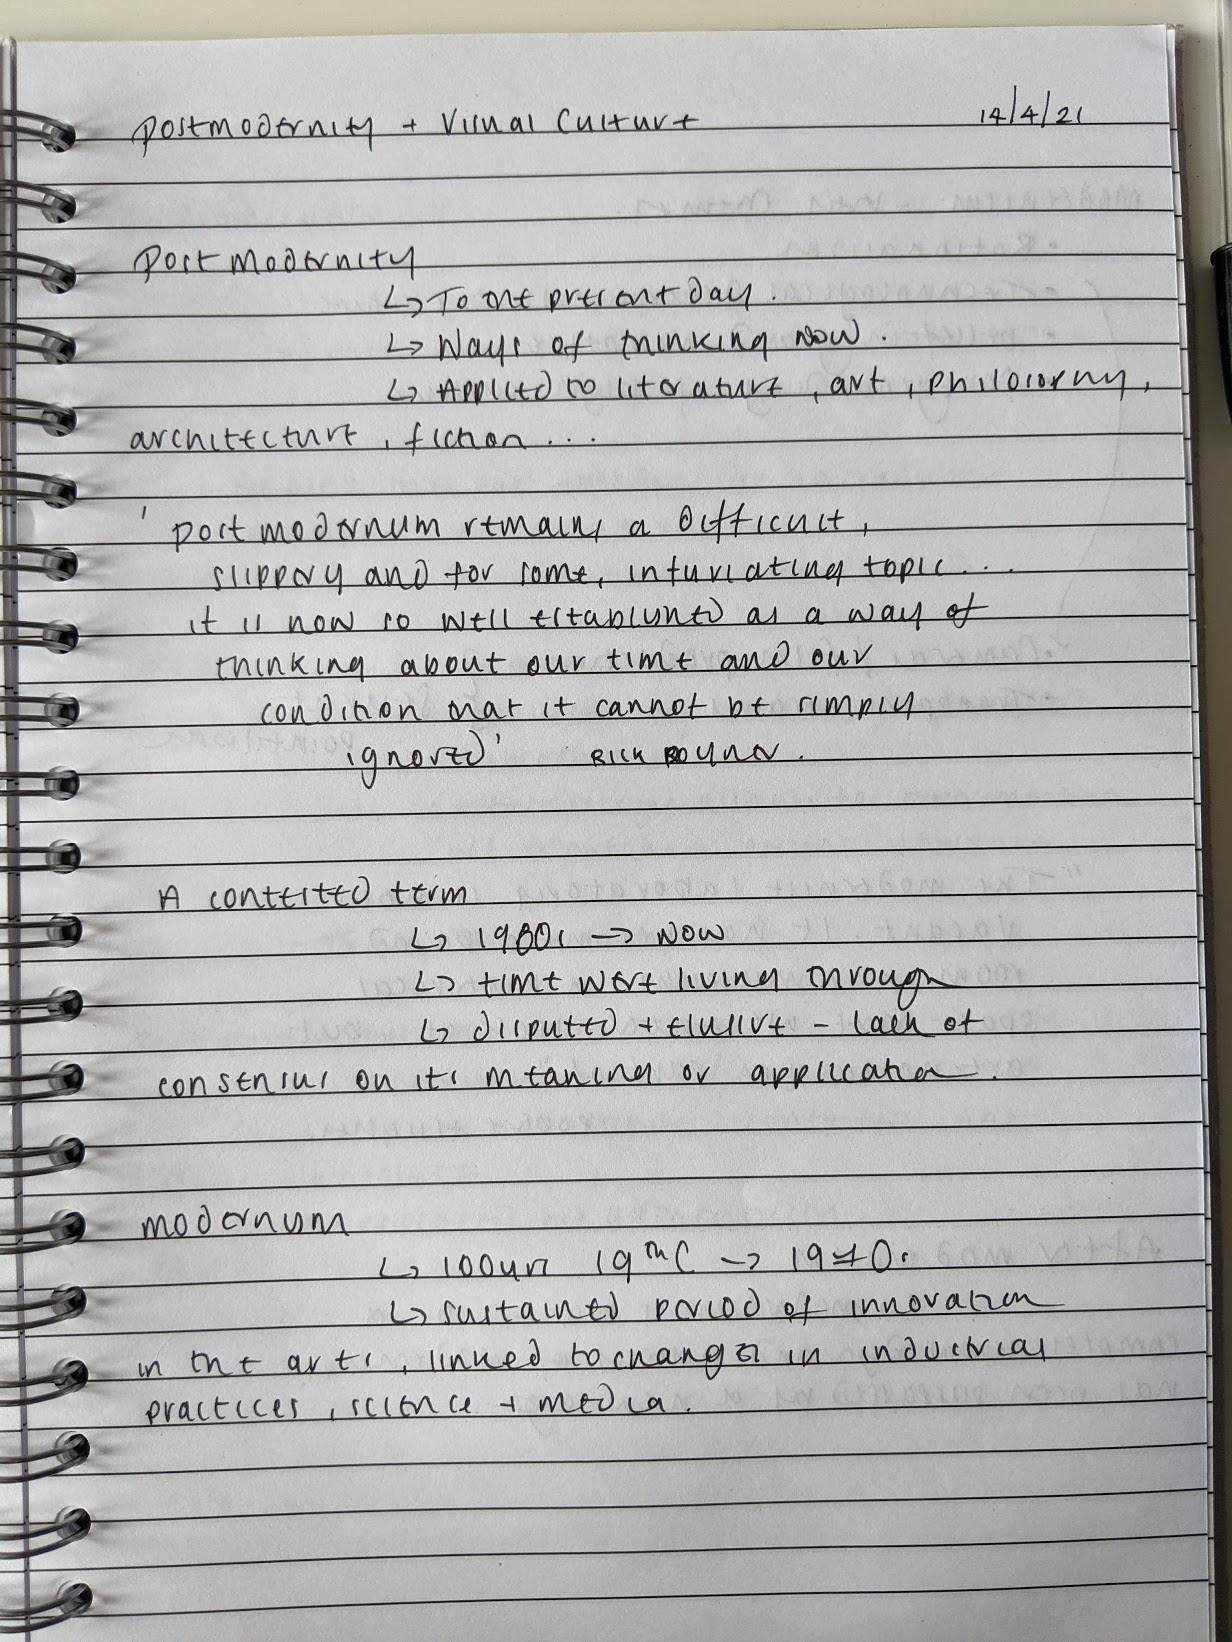 Postmodernity + Visual Culture 14/4/21
Postmodernity
↳ To the present day.
↳ Ways of thinking now.
↳ Applied to literature, art, philosophy,
architecture, fiction...
'Postmodernism remains a difficult,
slippery and for some, infuriating topic...
it is now so well established as a way of
thinking about our time and our
condition that it cannot be simply
ignored'
A contested term
↳ 1980s → Now
↳ time were living through
↳ disputed + elusive - lack of
consensus on its meaning or application.
modernism
↳ 100yrs 19thC → 1970s
↳ sustained period of innovation
in the arts, linked to changes in industrial
practices, science + media.